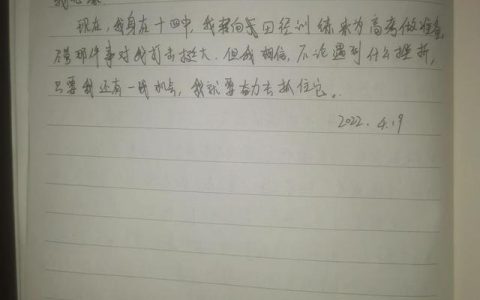 现在,我身在十四中,我将向着田径训练来为高考做准备,
尽管那件事对我打击挺大。但我相信,不论遇到什么挫折,
只要我还有一线机会,我就要奋力去抓住它。
2022.4.19